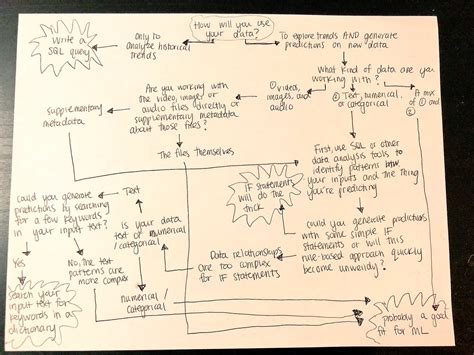 How will you use
your data?
Write a
SQL query
only to
analyze historical
trends
To explore trends AND generate
predictions on new data
What kind of data are you
working with?
① videos,
images, and
audio
② Text, numerical,
or categorical
A mix
of ① and
②
Are you working with
the video, image, or
audio files directly or
supplementary metadata
about those files?
supplementary
metadata
The files themselves
First, use SQL or other
data analysis tools to
identify patterns btw.
your inputs and the thing
you're predicting
IF statements
will do the
trick
could you generate predictions
with some simple IF
statements or will this
rule-based approach quickly
become unwieldy?
Data relationships
are too complex
for IF statements
Is your data
text or numerical
/categorical?
Text
could you generate
predictions by searching
for a few keywords
in your input text?
Yes
No, the text
patterns are
more complex
search your
input text for
keywords in a
dictionary
numerical /
categorical
probably a good
fit for ML